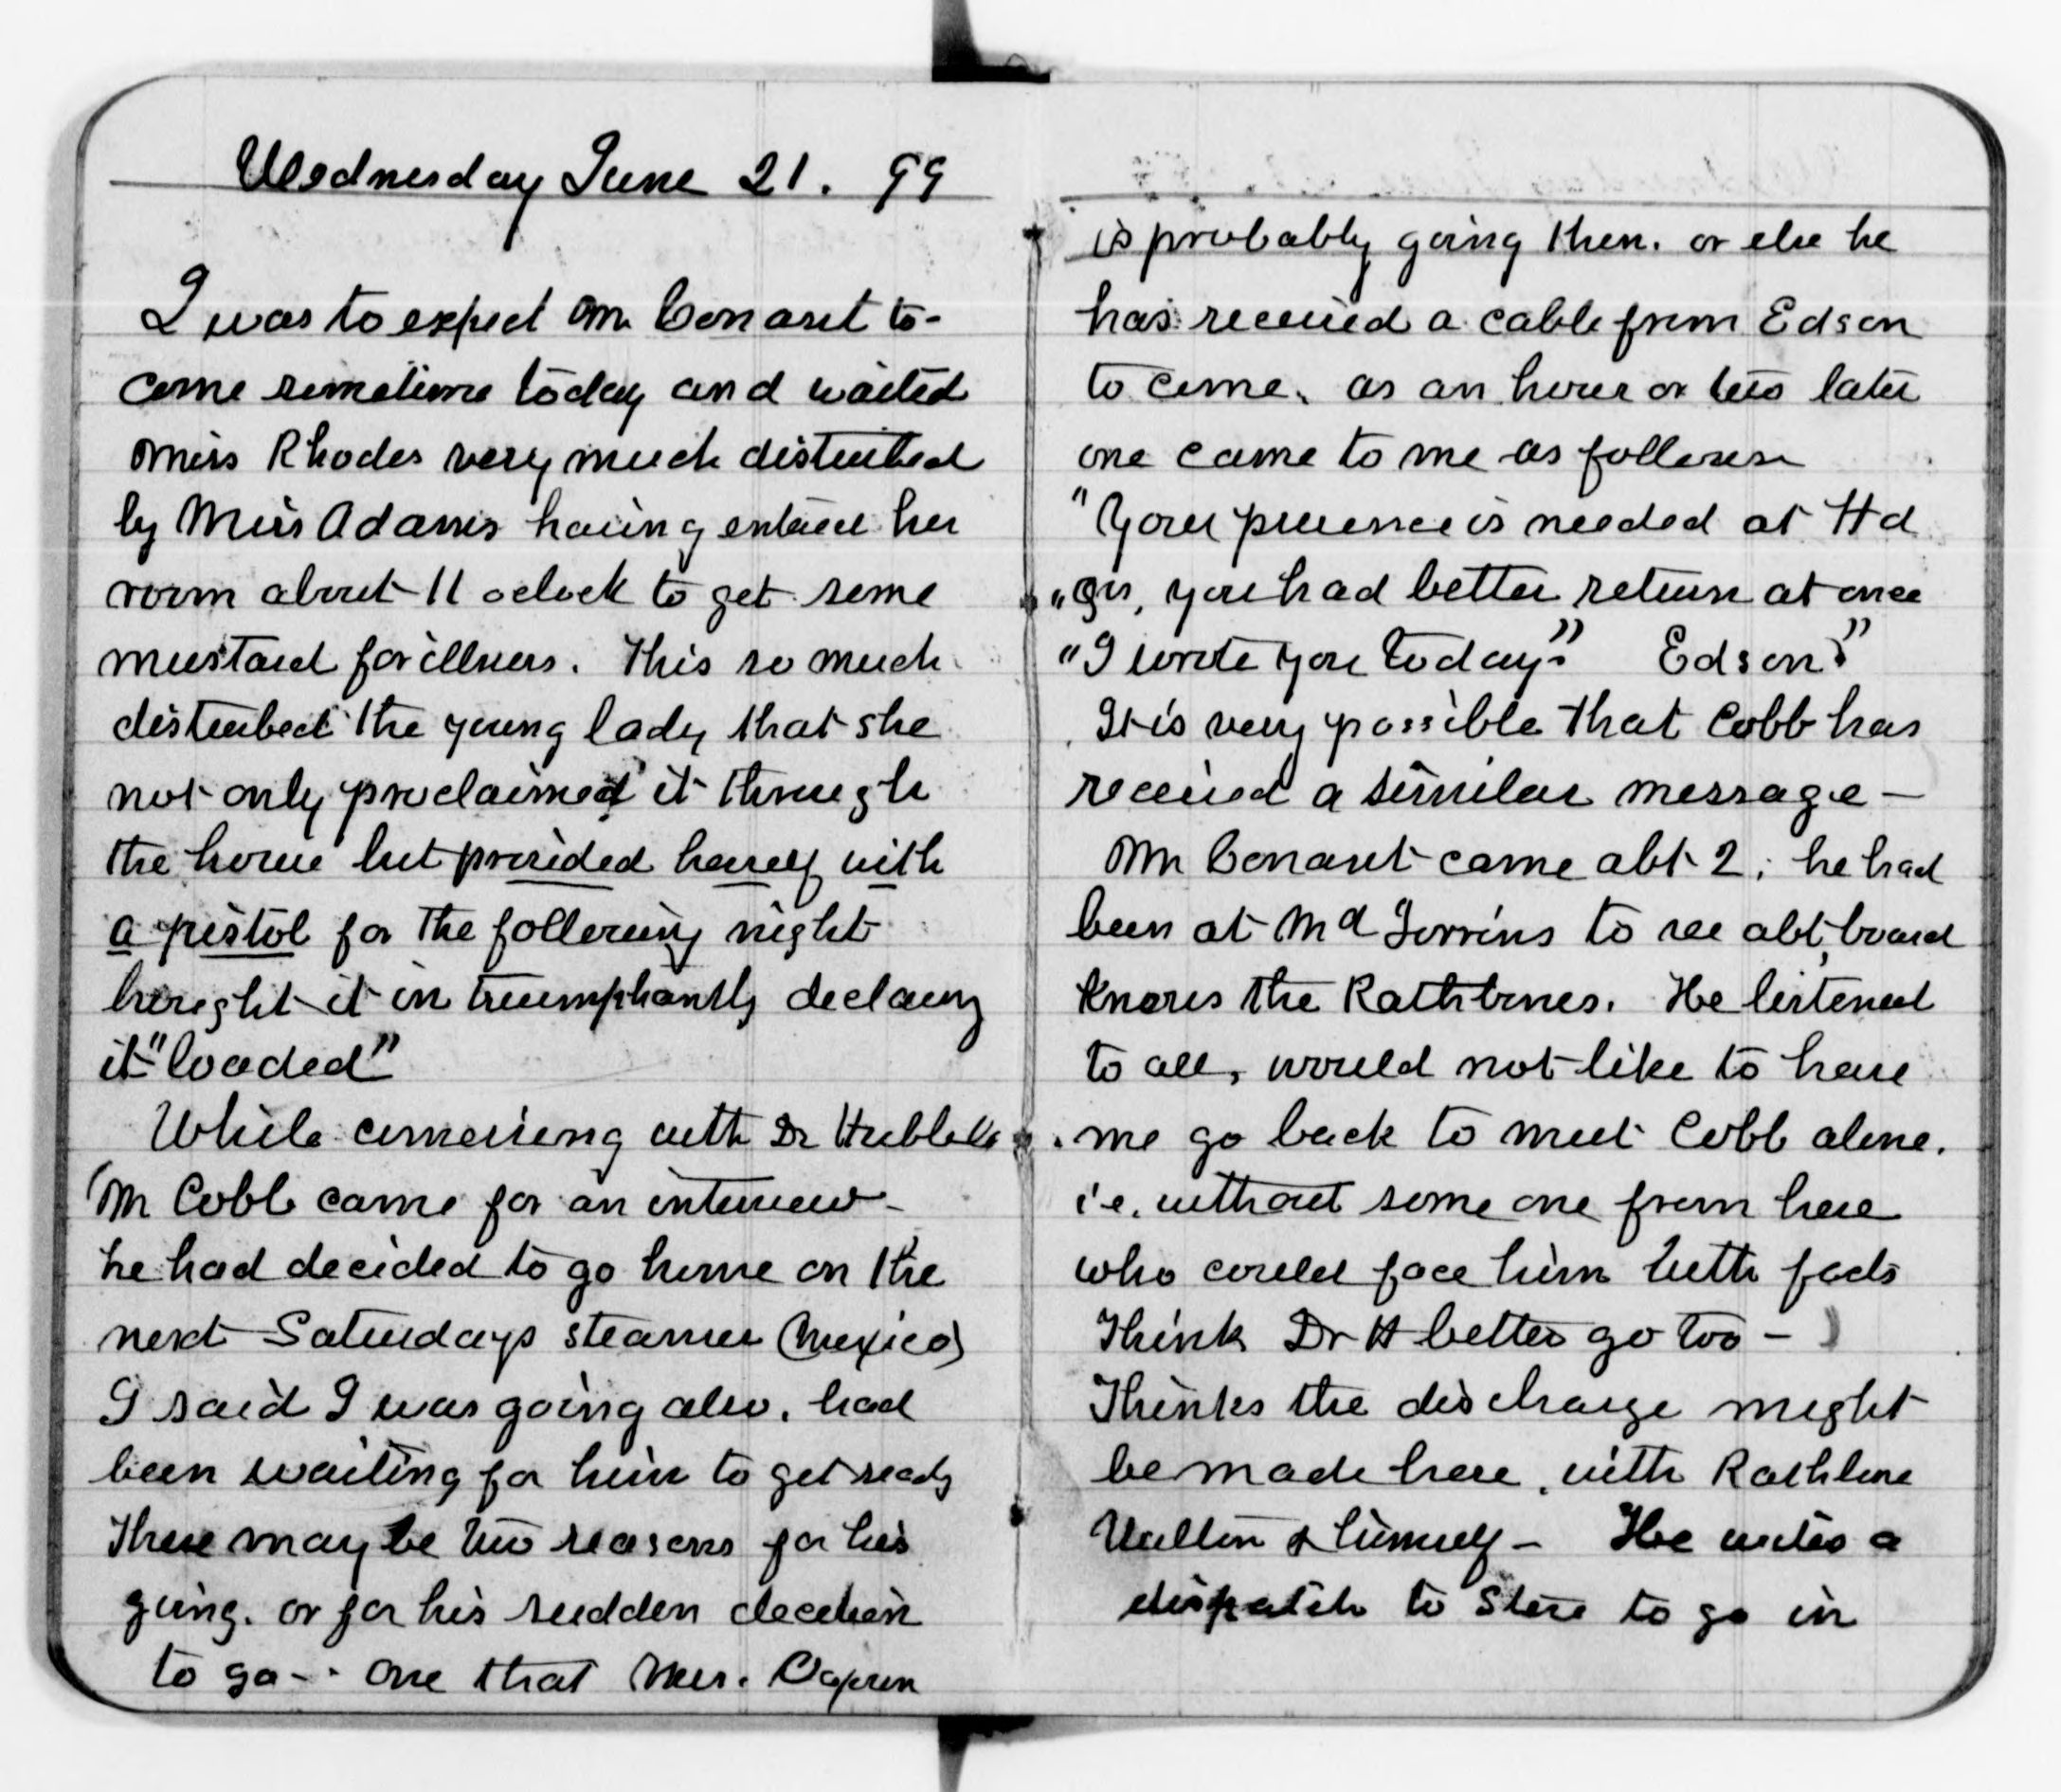 Wednesday June 21. 99
I was to expect Mr. Conant to-
come sometime today and waited
Miss Rhodes very much disturbed
by Miss Adams having entered her
room about 11 oclock to get some
mustard for illness. This so much
disturbed the young lady that she
not only proclaimed it through
the house but provided herself with
a pistol for the following night
brought it in triumphantly declaring
it "loaded"
While conversing with Dr Hubbell
Mr Cobb came for an interview -
he had decided to go home on the
next Saturdays steamer (Mexico)
I said I was going also, had
been waiting for him to get ready
There may be two reasons for his
going. or for his sudden decision
to go - . One that Mrs.
is probably going then. or else he
has received a cable from Edson
to come. as an hour or two later
one came to me as follows
"Your presence is needed at Hd
"qrs, you had better return at once
"I wrote you today." Edson."
It is very possible that Cobb has
received a similar message -
Mr Conant came abt 2. he had
been at Md to see abt, board
Knows the Rathbones. He listened
to all, would not like to have
me go back to meet Cobb alone.
i.e. without some one from here
who could face him with facts
Think Dr H better go too -
Thinks the discharge might
be made here, with Rathbone
Warren & himself - He writes a
dispatch to to go in